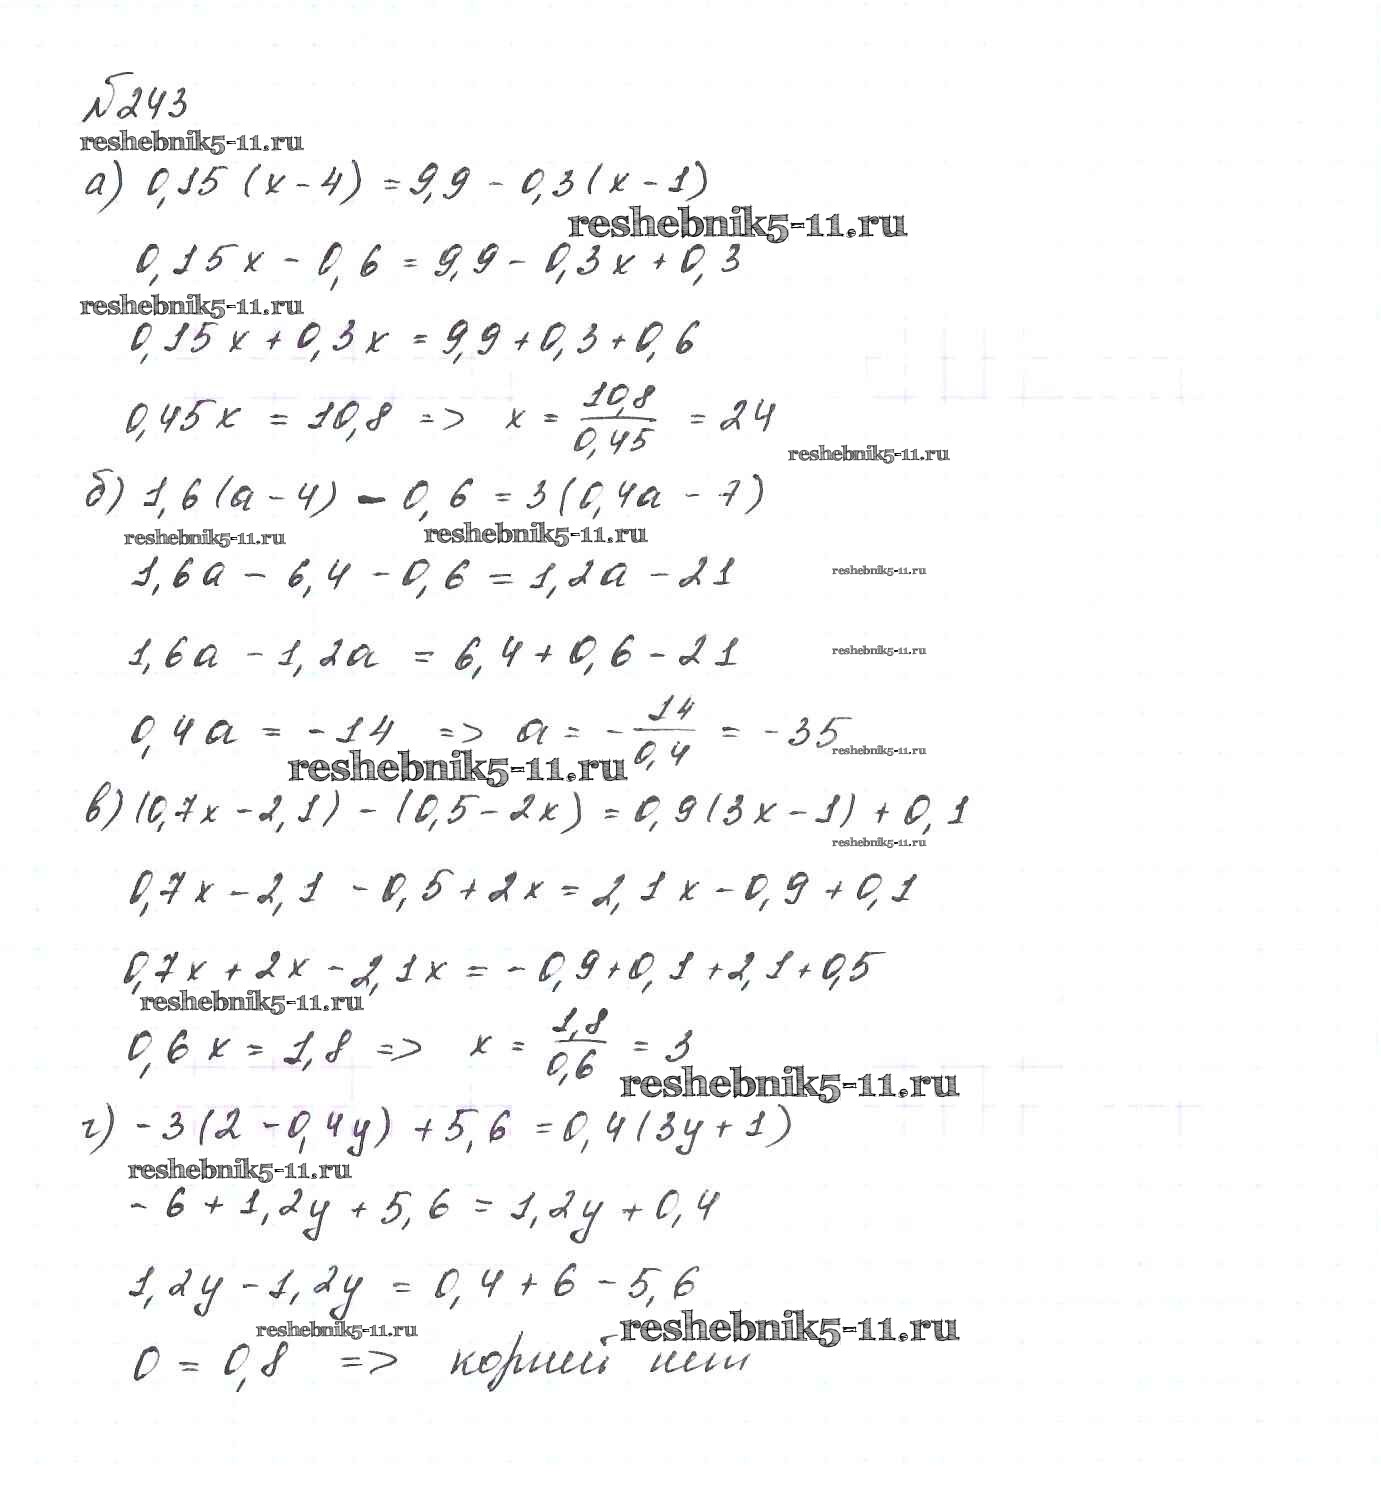 №243
reshebnik5-11.ru
а) 0,15(x-4) = 9,9 - 0,3(x-1)
reshebnik5-11.ru
0,15x - 0,6 = 9,9 - 0,3x + 0,3
reshebnik5-11.ru
0,15x + 0,3x = 9,9 + 0,3 + 0,6
0,45x = 10,8 => x = 10,8/0,45 = 24
reshebnik5-11.ru
б) 1,6(a-4) - 0,6 = 3(0,4a - 7)
reshebnik5-11.ru reshebnik5-11.ru
1,6a - 6,4 - 0,6 = 1,2a - 21
reshebnik5-11.ru
1,6a - 1,2a = 6,4 + 0,6 - 21
reshebnik5-11.ru
0,4a = -14 => a = -14/0,4 = -35
reshebnik5-11.ru
reshebnik5-11.ru
в) (0,7x - 2,1) - (0,5 - 2x) = 0,9(3x - 1) + 0,1
reshebnik5-11.ru
0,7x - 2,1 - 0,5 + 2x = 2,1x - 0,9 + 0,1
0,7x + 2x - 2,1x = -0,9 + 0,1 + 2,1 + 0,5
reshebnik5-11.ru
0,6x = 1,8 => x = 1,8/0,6 = 3
reshebnik5-11.ru
г) -3(2 - 0,4y) + 5,6 = 0,4(3y + 1)
reshebnik5-11.ru
-6 + 1,2y + 5,6 = 1,2y + 0,4
1,2y - 1,2y = 0,4 + 6 - 5,6
reshebnik5-11.ru reshebnik5-11.ru
0 = 0,8 => корней нет